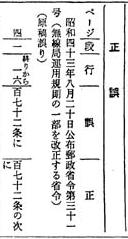 正誤
ページ 段 行 誤 正
昭和四十三年八月二十日公布郵政省令第三十一
号（無線局運用規則の一部を改正する省令）
（原稿誤り）
四 一 終りから一六 百七十二条に 百七十二条の次に